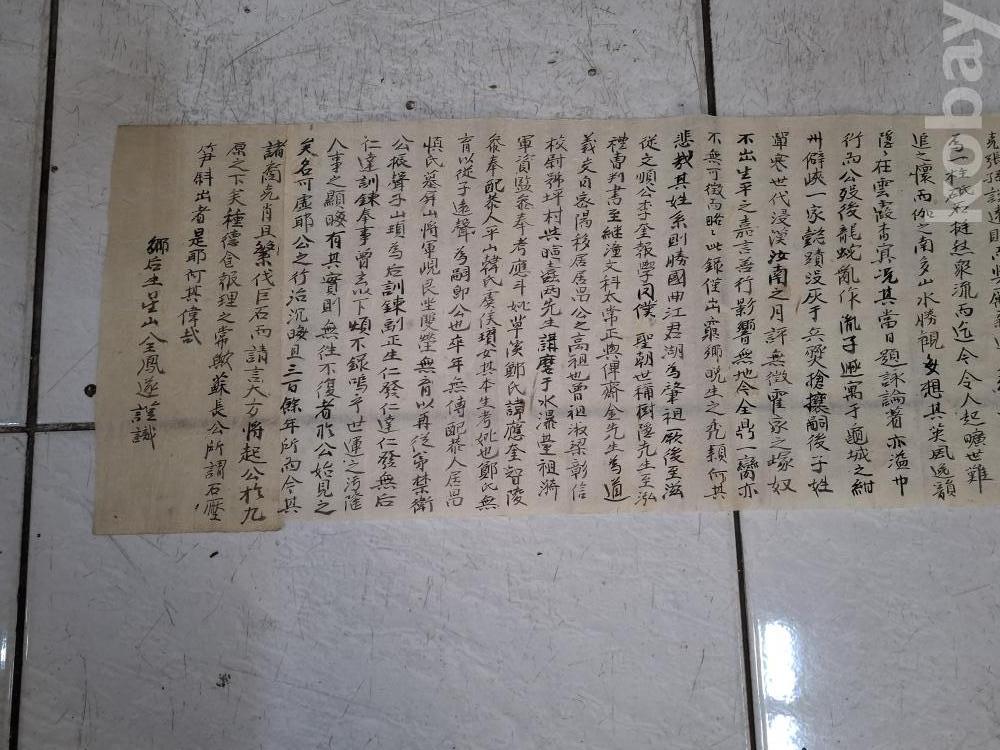 追之懷而伽之南多山水勝觀妄想其英風逸韻
隱在雲霞杳冥况其當日題詠論著亦溢巾
行而公殁後龍蛇亂作胤子 寓于龜城之紺
州僻峽一家懿蹟沒灰于兵燹搶攘嗣後子姓
單寒世代浸溟汝南之月評無徵霍家之塚奴
不出生平之嘉言善行影響無地今全鼎一臠亦
不無可徵而略此錄僅出窮鄕晩生之禿穎何其
悲哉其姓系則勝國曲江君湖爲肇祖厥後至滋
從文順公李奎報學因僕 聖朝世稱 隱先生至泓
禮曹判書至繼潼文科太常正與俾齋金先生爲道
義交自 陽移居居昌公之高祖也曾祖淑梁彰信
校尉號坪村與暄蠹兩先生講磨于水瀑臺祖濟
軍資監叅奉考應斗妣草溪鄭氏諱應奎智陵
叅奉配恭人平山韓氏虔侯瓆女其本生考妣也鄭氏無
育以從子遠聲爲嗣卽公也卒年無傳配恭人居昌
愼氏墓屛山將軍峴艮坐雙塋無育以再從弟禁衛
公振聲子山瑣爲后訓鍊副正生仁發仁達仁發無后
仁達訓鍊奉事曾玄以下煩不錄嗚乎世運之汚隆
人事之顯晦有其實則無往不復者於公始見之
矣名可虛耶公之行治沉晦且三百餘年所而今其
諸裔克肖且繁伐巨石而請言大方將起公於九
原之下矣種德食報理之常歟蘇長公所謂石壓
笋斜出者是耶何其偉哉
鄕后生星山全鳳遂謹識
kobay